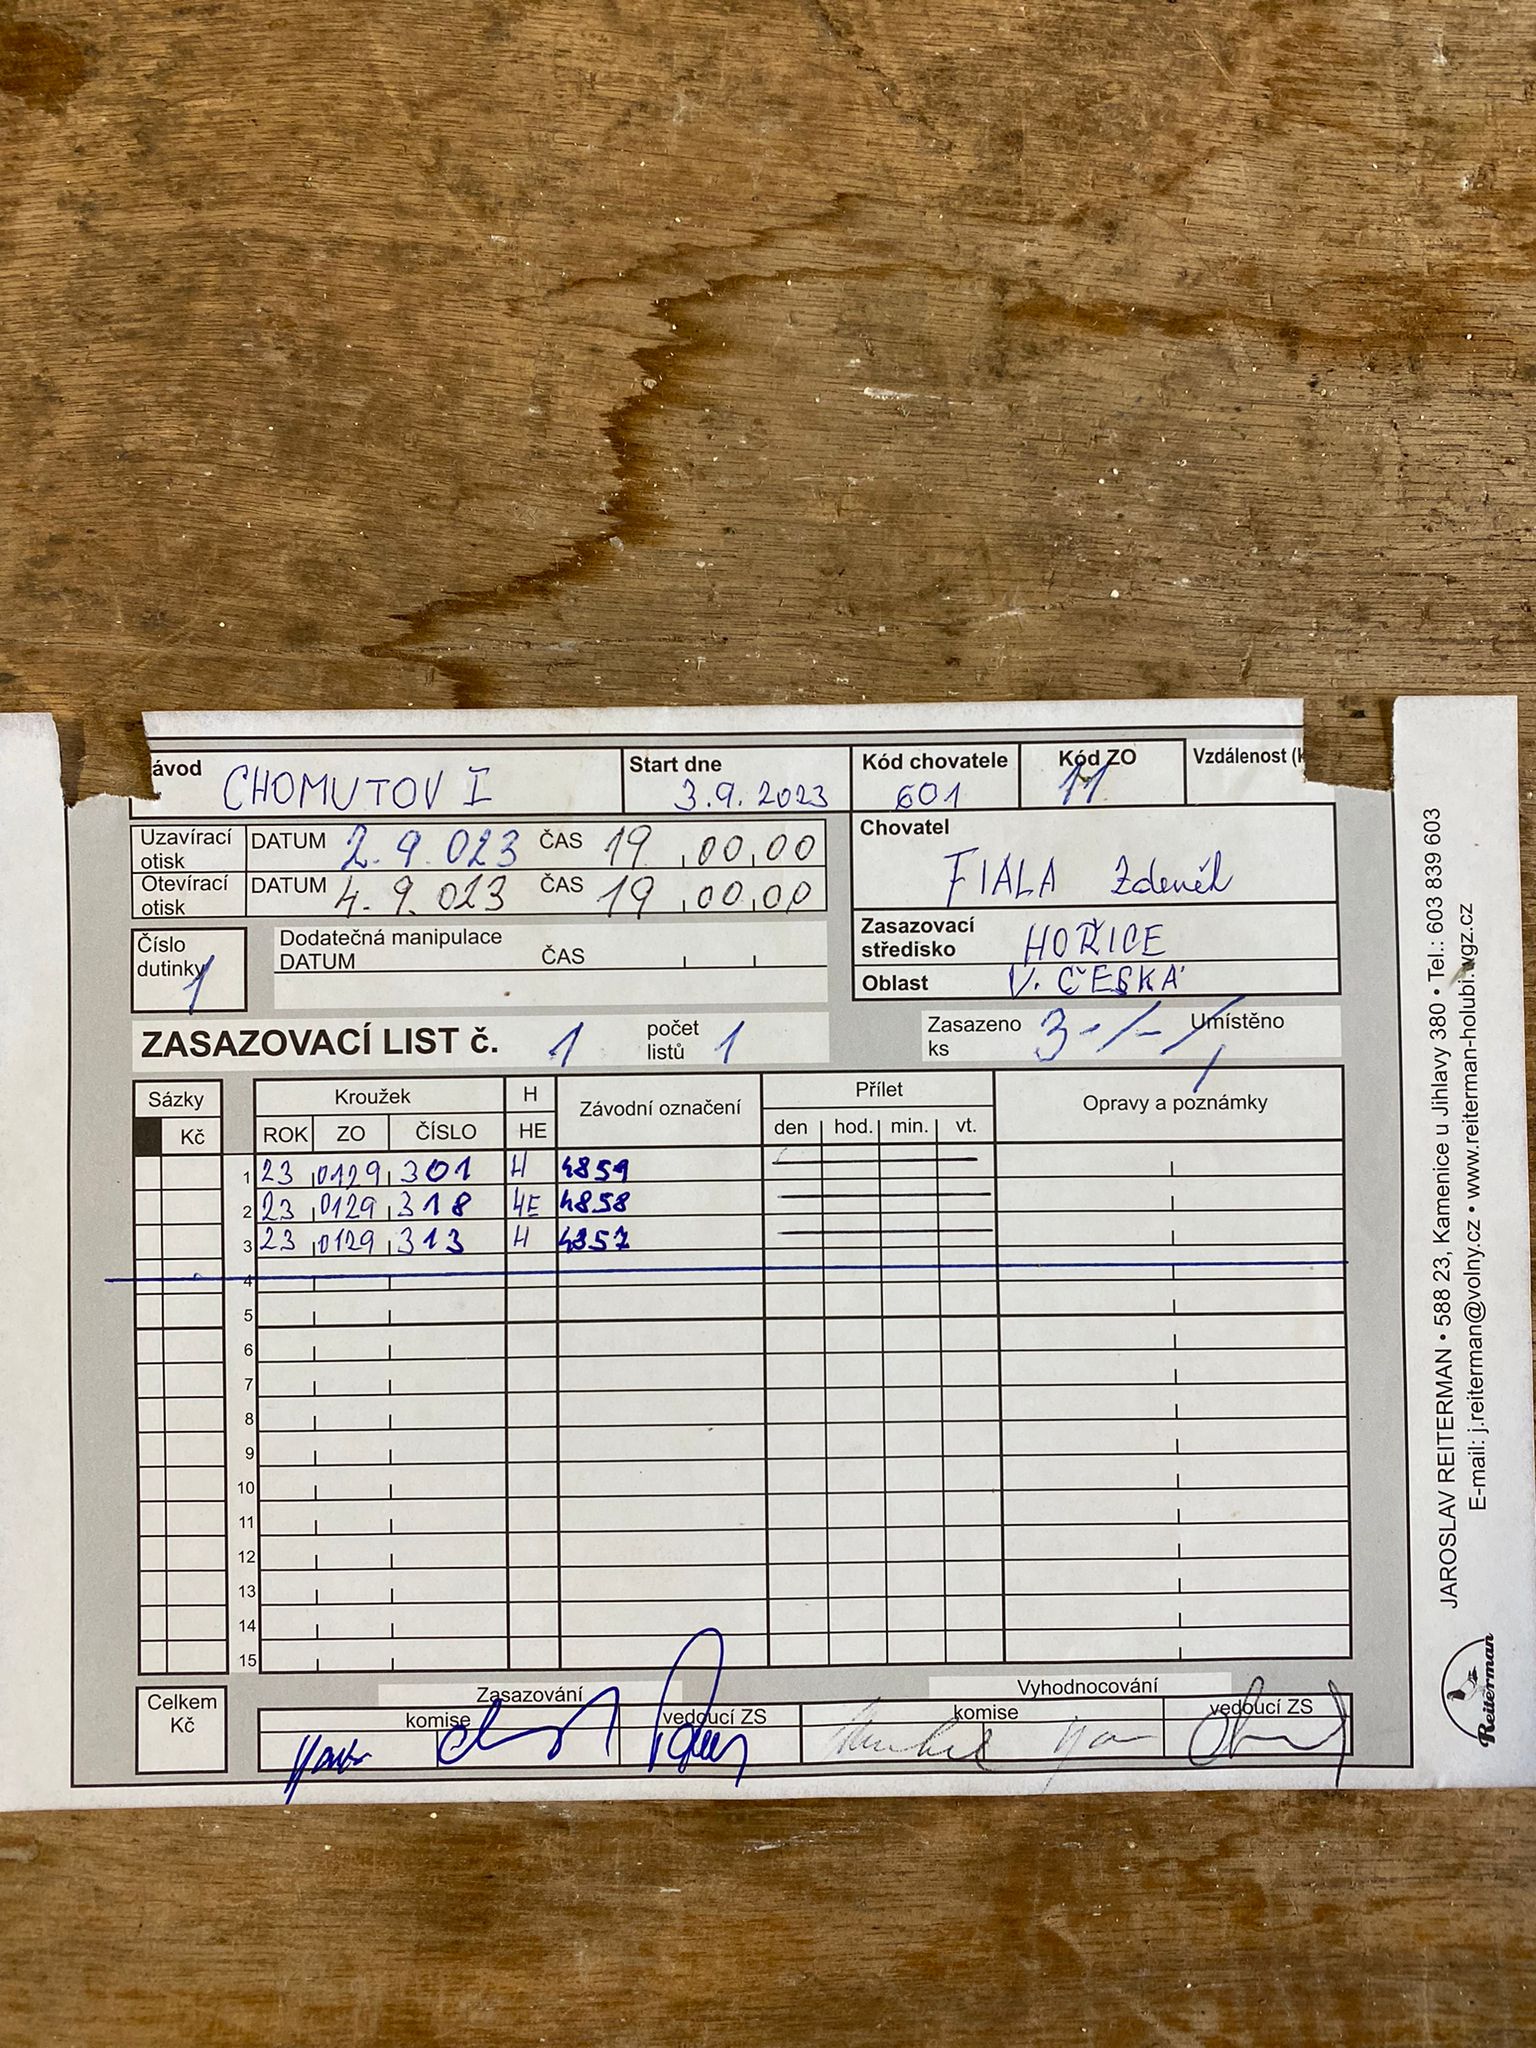 ávod CHOMUTOV I Start dne 3.9.2023 Kód chovatele 601 Kód ZO 11 Vzdálenost (k
Uzavírací otisk DATUM 2.9.023 ČAS 19 00 00
Otevírací otisk DATUM 4.9.023 ČAS 19 00 00
Chovatel FIALA Zdeněk
Zasazovací středisko HOŘICE
Oblast V. ČESKÁ
Číslo dutinky 1
Dodatečná manipulace
DATUM ČAS
ZASAZOVACÍ LIST č. 1 počet listů 1
Zasazeno ks 3-/-/ Umístěno
Sázky Kroužek H Závodní označení Přílet Opravy a poznámky
Kč ROK ZO ČÍSLO HE den hod. min. vt.
1 23 0129 301 H 4859
2 23 0129 318 HE 4858
3 23 0129 313 H 4857
4
5
6
7
8
9
10
11
12
13
14
15
Celkem Kč
Zasazování Vyhodnocování
komise vedoucí ZS komise vedoucí ZS
JAROSLAV REITERMAN • 588 23, Kamenice u Jihlavy 380 • Tel.: 603 839 603
E-mail: j.reiterman@volny.cz • www.reiterman-holubi.wgz.cz
Reiterman